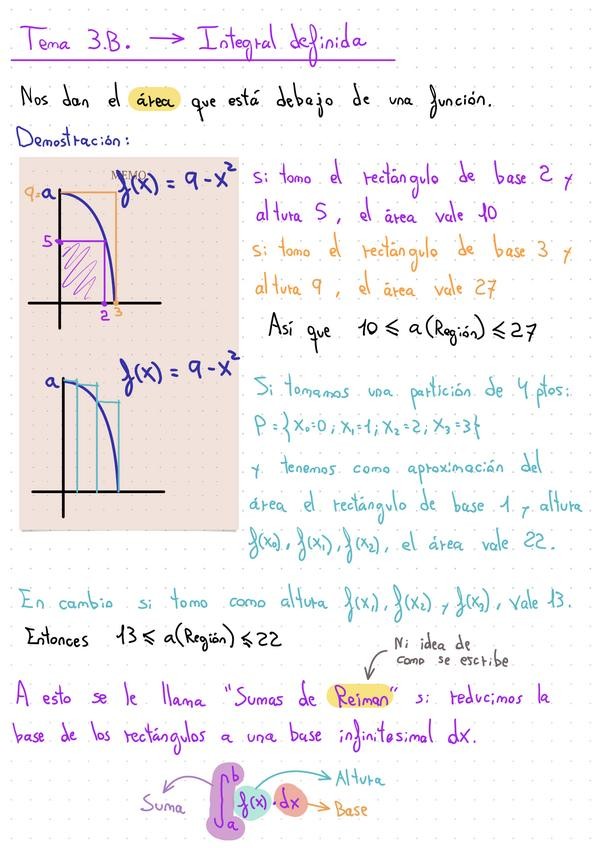 Tema 3.B. → Integral definida
Nos dan el área que está debajo de una función.
Demostración:
MEMO
f(x) = 9-x²
9=a
5
2
3
si tomo el rectángulo de base 2 y
altura 5, el área vale 10
si tomo el rectángulo de base 3 y
altura 9, el área vale 27
Así que 10 ⩽ a(Región) ⩽ 27
f(x) = 9-x²
a
Si tomamos una partición de 4 ptos:
P = {X₀=0; X₁=1; X₂=2; X₃=3}
y tenemos como aproximación del
área el rectángulo de base 1 y altura
f(x₀), f(x₁), f(x₂), el área vale 22.
En cambio si tomo como altura f(x₁), f(x₂) y f(x₃), vale 13.
Entonces 13 ⩽ a(Región) ⩽ 22
Ni idea de
como se escribe
A esto se le llama "Sumas de Reiman" si reducimos la
base de los rectángulos a una base infinitesimal dx.
Suma
∫ₐᵇ f(x)·dx
Altura
Base